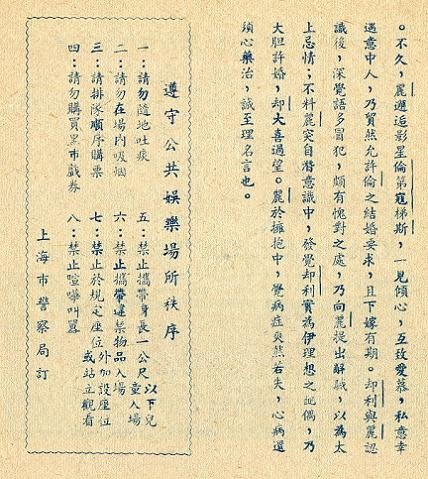 。不久，麗邂逅影星倫第寇梯斯，一見傾心，互致愛慕，私意幸
遇意中人，乃貿然允許倫之結婚要求，且下嫁有期。却利與麗認
識後，深覺語多冒犯，頗有愧對之處，乃向麗提出辭職，以為太
上忘情；不料麗突自潛意識中，發覺却利實為伊理想之匹偶，乃
大胆許婚，却大喜過望。麗於擁抱中，覺病症爽然若失，心病還
須心藥治，誠至理名言也。
遵守公共娛樂場所秩序
一：請勿隨地吐痰
二：請勿在場內吸烟
三：請排隊順序購票
四：請勿購買黑市戲券
五：禁止攜帶身長一公尺以下兒童入場
六：禁止攜帶違禁物品入場
七：禁止於規定座位外加設座位或站立觀看
八：禁止喧嘩叫囂
上海市警察局訂